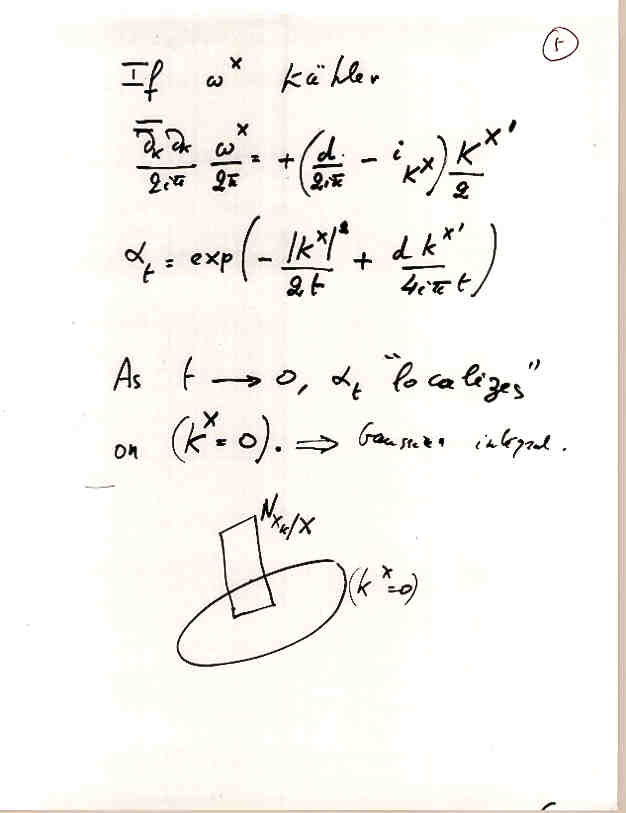 If ω^X Kähler
\frac{\overline{∂}_K ∂_K}{2iπ} \frac{ω^X}{2π} = + ( \frac{d}{2iπ} - i_{K^X} ) \frac{K^{X'}}{2}
α_t = exp ( - \frac{|K^X|^2}{2t} + \frac{d K^{X'}}{4iπ t} )
As t → 0, α_t "localizes"
on (K^X = 0). ⇒ Gaussian integral.
N_{X_K/X}
(K^X = 0)